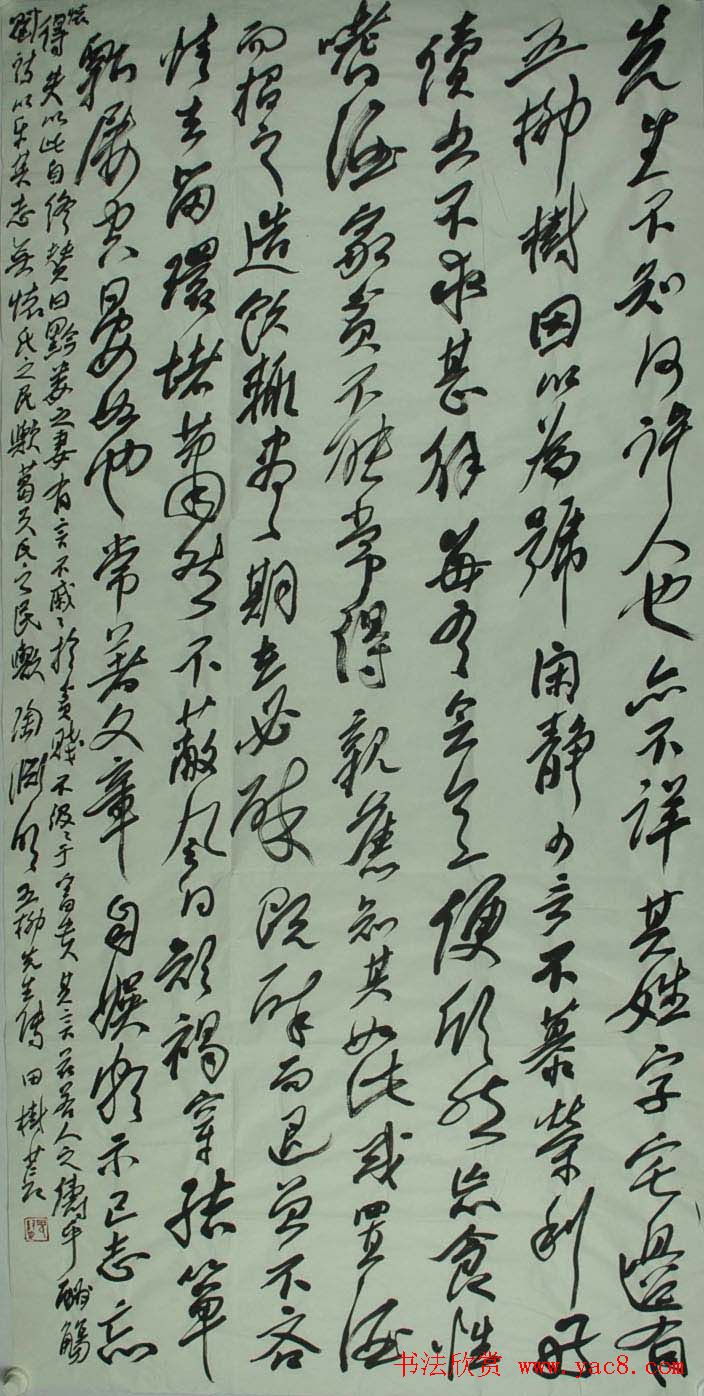 先生不知何許人也亦不詳其姓字宅邊有
五柳樹因以為號閑靜少言不慕榮利好
讀書不求甚解每有會意便欣然忘食性
嗜酒家貧不能常得親舊知其如此或置酒
而招之造飲輒盡期在必醉既醉而退曾不吝
情去留環堵蕭然不蔽風日短褐穿結簞
瓢屢空晏如也常著文章自娛頗示己志忘
懷得失以此自終贊曰黔婁之妻有言不戚〻於貧賤不汲〻于富貴其言茲若人之儔乎酬觴
賦詩以樂其志無懷氏之民歟葛天氏之民歟陶淵明五柳先生傳田樹萇
书法欣赏 www.yac8.com